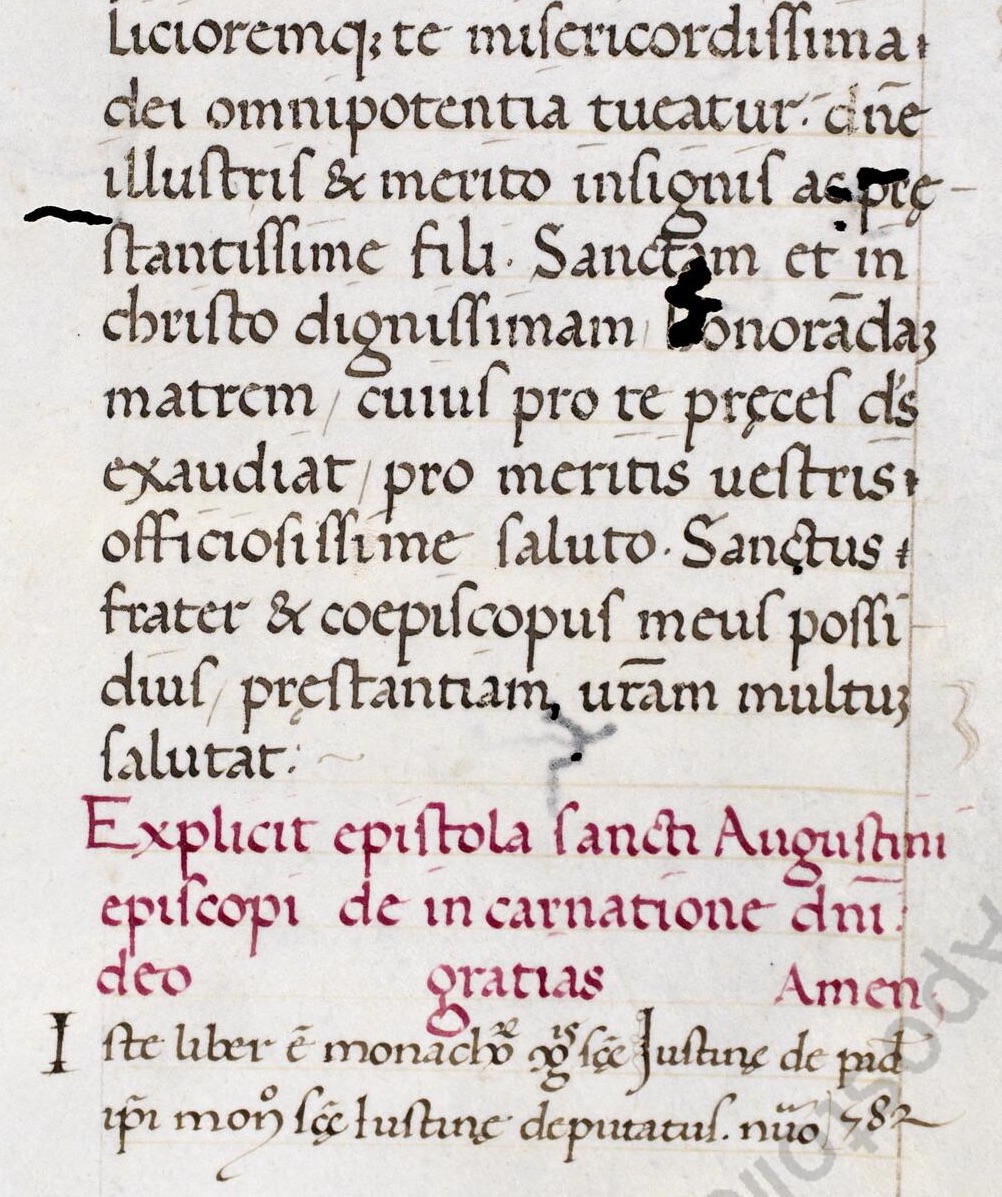 licioremq; te misericordissima
dei omnipotentia tueatur. dñe
illustris & merito insignis ac prę
stantissime fili. Sanctam et in
christo dignissimam / honorādaꝫ
matrem / cuius pro te pręces d's
exaudiat / pro meritis uestris
officiosissime saluto. Sanctus
frater & coepiscopus meus possi
dius / pręstantiam, ur̄am multuꝫ
salutat:
Explicit epistola sancti Augustini
episcopi de incarnatione dn̄i:
deo gratias Amen
Iste liber ē monachoꝝ 9g^is sc̄ę Justinę de pad̄
ip̄i mon^o sc̄ę Iustinę deputatus. nūo 782